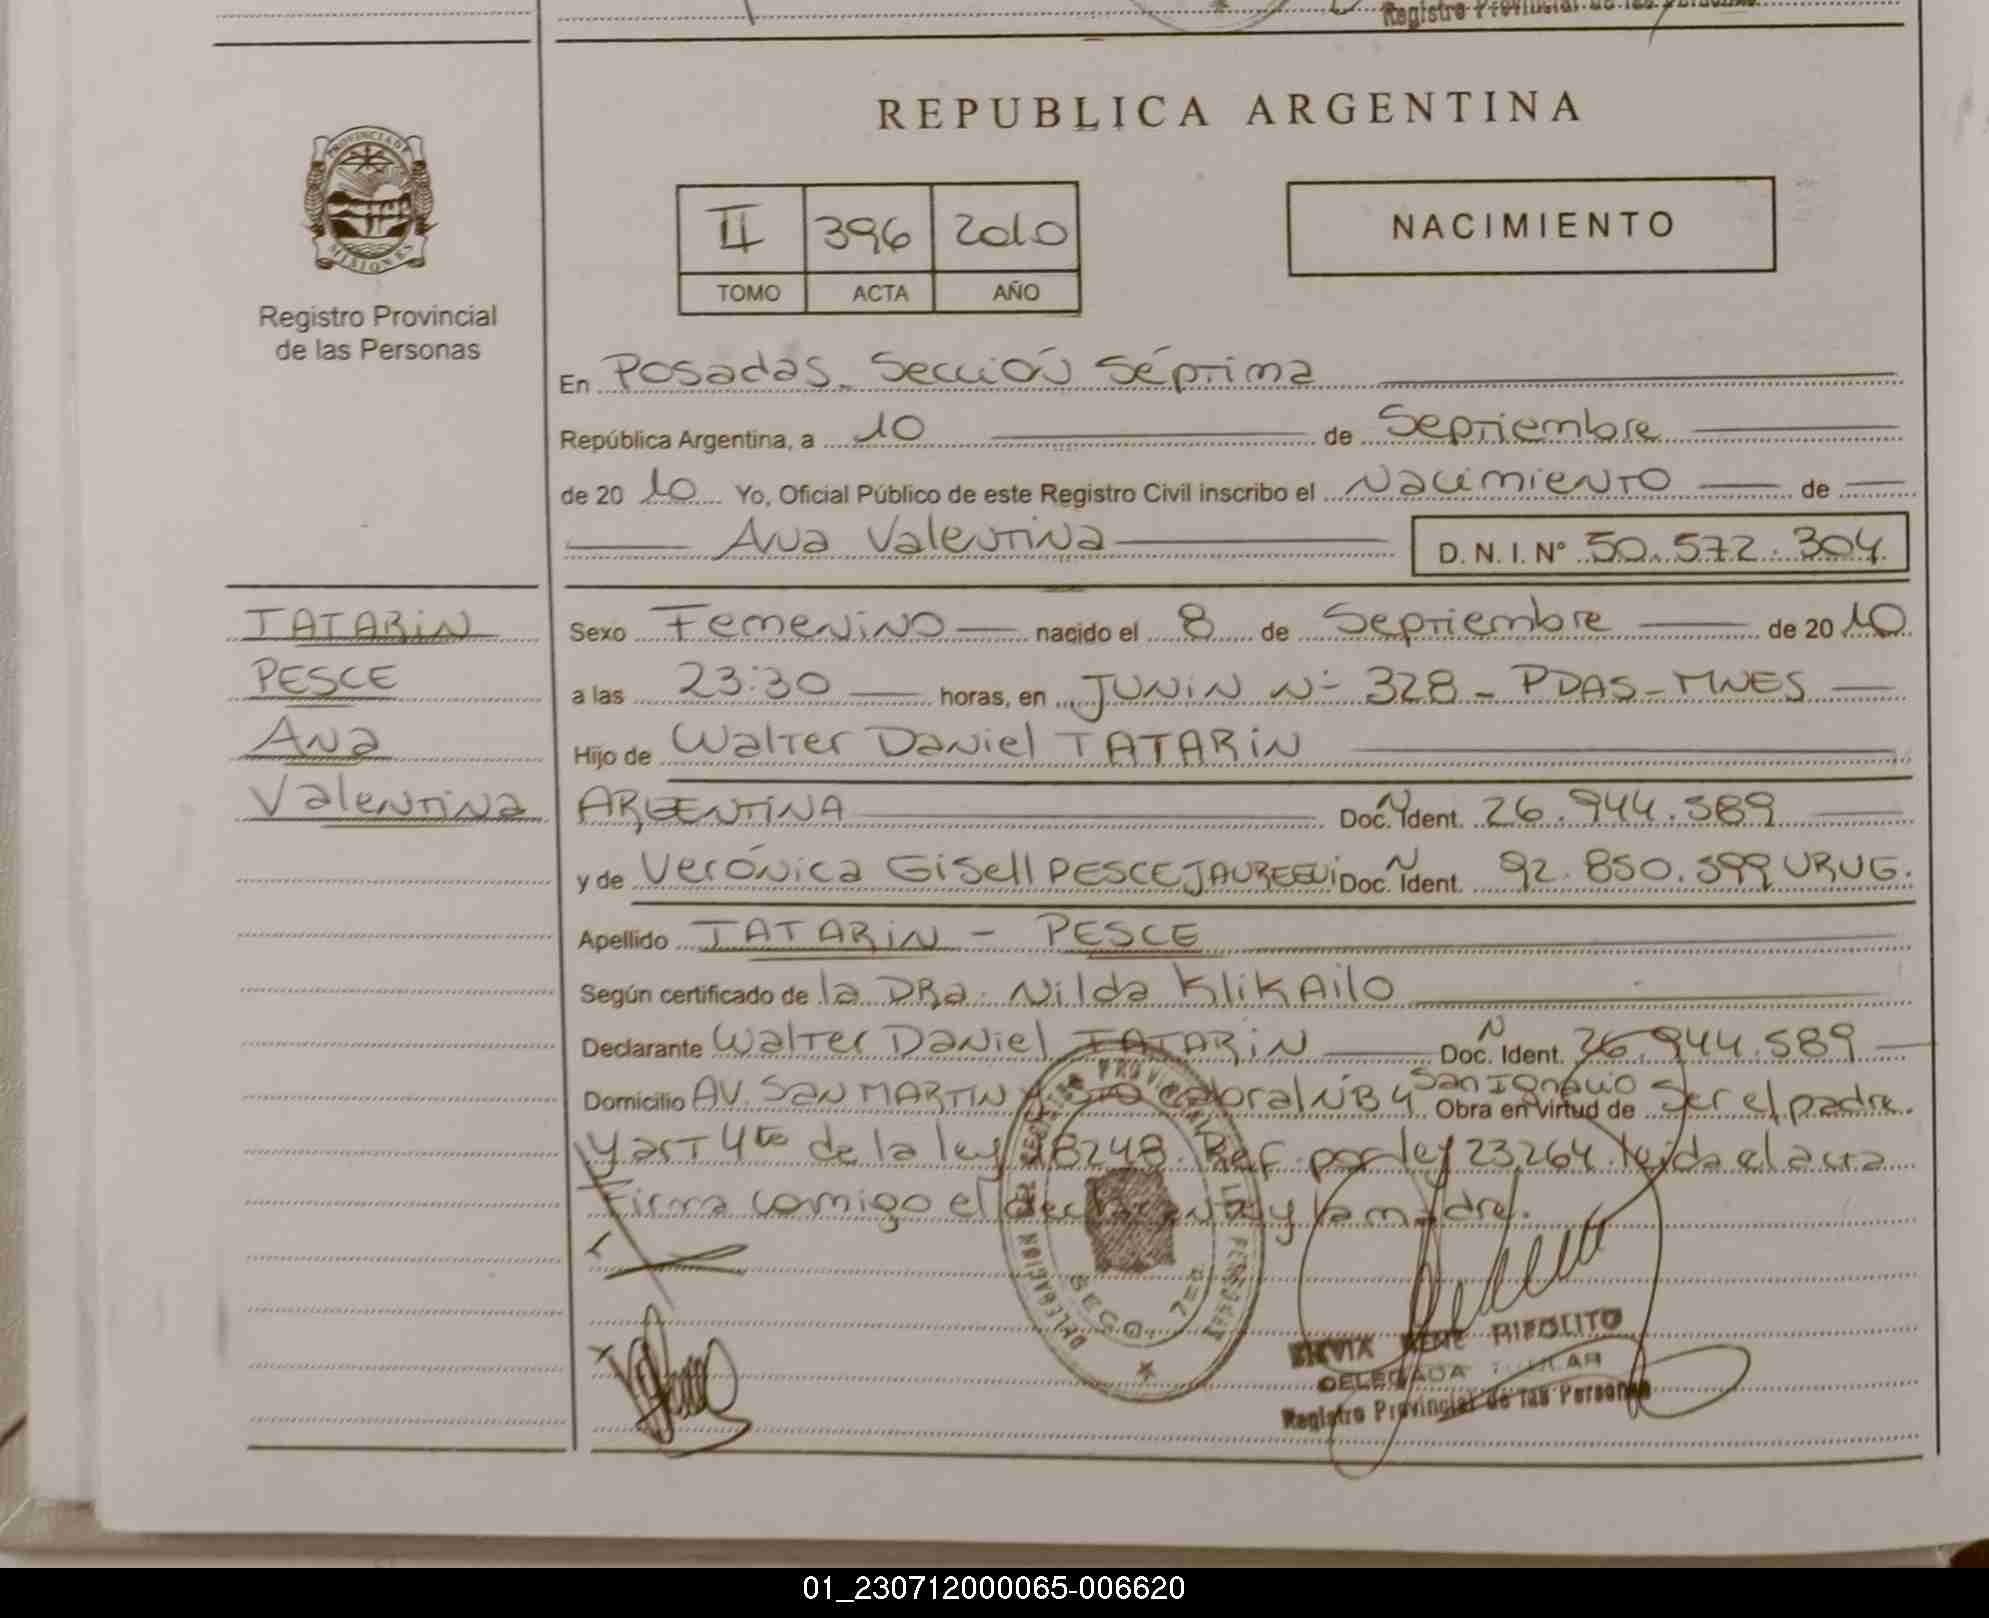 Registro Provincial de las Personas
REPUBLICA ARGENTINA
PROVINCIA DE
MISIONES
Registro Provincial
de las Personas
II 396 2010
TOMO ACTA AÑO
NACIMIENTO
En Posadas - Sección Séptima
República Argentina, a 10 de Septiembre
de 2010 Yo, Oficial Público de este Registro Civil inscribo el Nacimiento de
Ana Valentina D. N. I. Nº 50.572.304
TATARIN
PESCE
Ana
Valentina
Sexo Femenino nacido el 8 de Septiembre de 2010
a las 23:30 horas, en JUNIN Nº 328 - PDAS - MNES
Hijo de Walter Daniel TATARIN
ARGENTINA Doc. N Ident. 26.944.589
y de Verónica Gisell PESCE JAUREGUI Doc. N Ident. 92.850.599 URUG.
Apellido TATARIN - PESCE
Según certificado de la DRa. Nilda KliKAilo
Declarante Walter Daniel TATARIN Doc. N Ident. 26.944.589
Domicilio AV. San MARTIN San Ignacio Obra en virtud de ser el padre.
y art 4to de la ley 18248. Ref. por ley 23264. leida el acta
Firma comigo el declarante y la madre.
DELEGACION
7ma
RENE HIPOLITO
DELEGADA TITULAR
Registro Provincial de las Personas
01_230712000065-006620